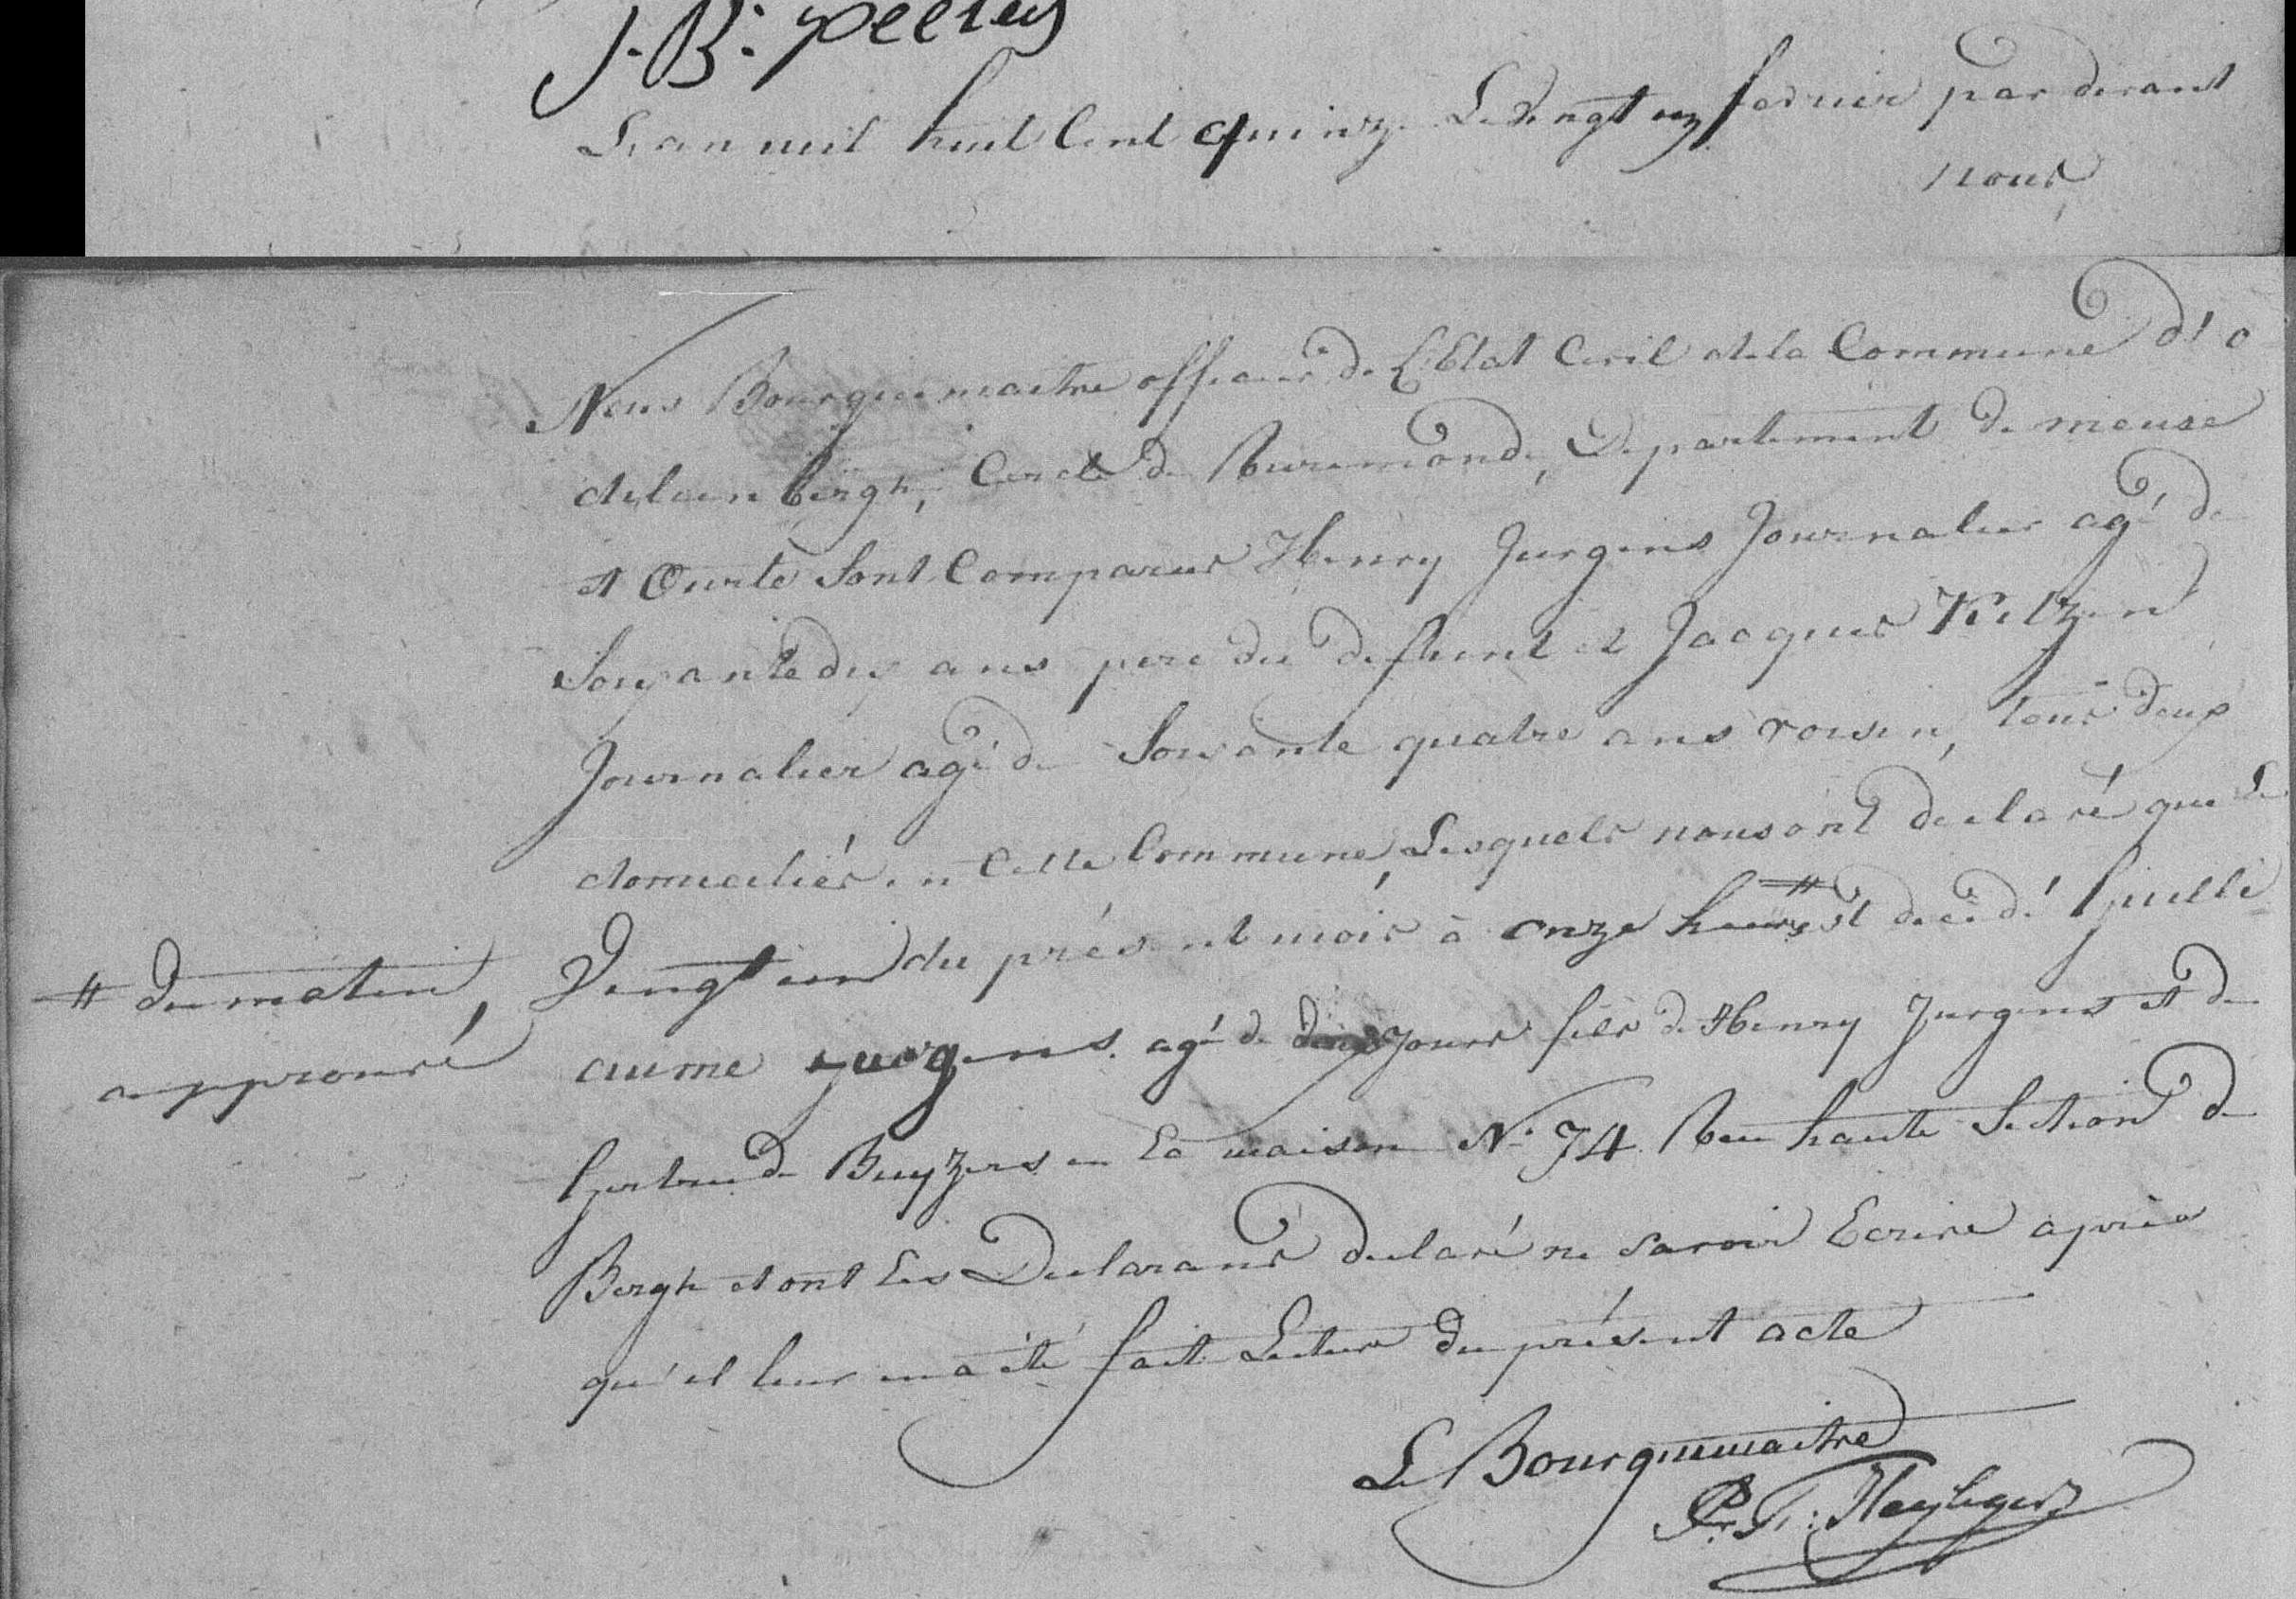 J. B. peeters
L'an mil huit Cent quinze Le vingt un fevrier par devant
nous
Nous Bourguemaitre officier de L'Etat Civil de la Commune d'o
delienbergh, Cercle de Ruremonde, Departement de meuse
et Ourte Sont Comparus Henry Jurgens Journalier agé de
Soixante dix ans pere du deffunt et Jacques Kilzen
Journalier agé de Soixante quatre ans voisin, tous deux
domiciliés en Cette Commune, Lesquels nous ont declaré que Le
Vingt un du présent mois à onze heures # est decedé Guille
# du matin
approuvé
aume Jurgens agé de deux Jours fils de Henry Jurgens et de
Gertrude Buyzers en La maison N.° 74 Rue haute Section de
Bergh et ont Les Declarans declaré ne savoir Ecrire après
qu'il leur en a été fait Lecture du présent acte
Le Bourguemaitre